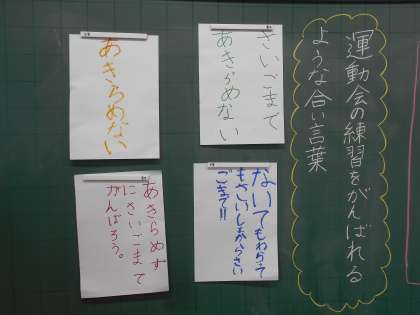 運動会の練習をがんばれる
ような合い言葉
さいごまで
あきらめない
あきらめない
ないてもわらって
もさいしょからさい
ごまで!!
あきらめず
にさいごまで
がんばろう。